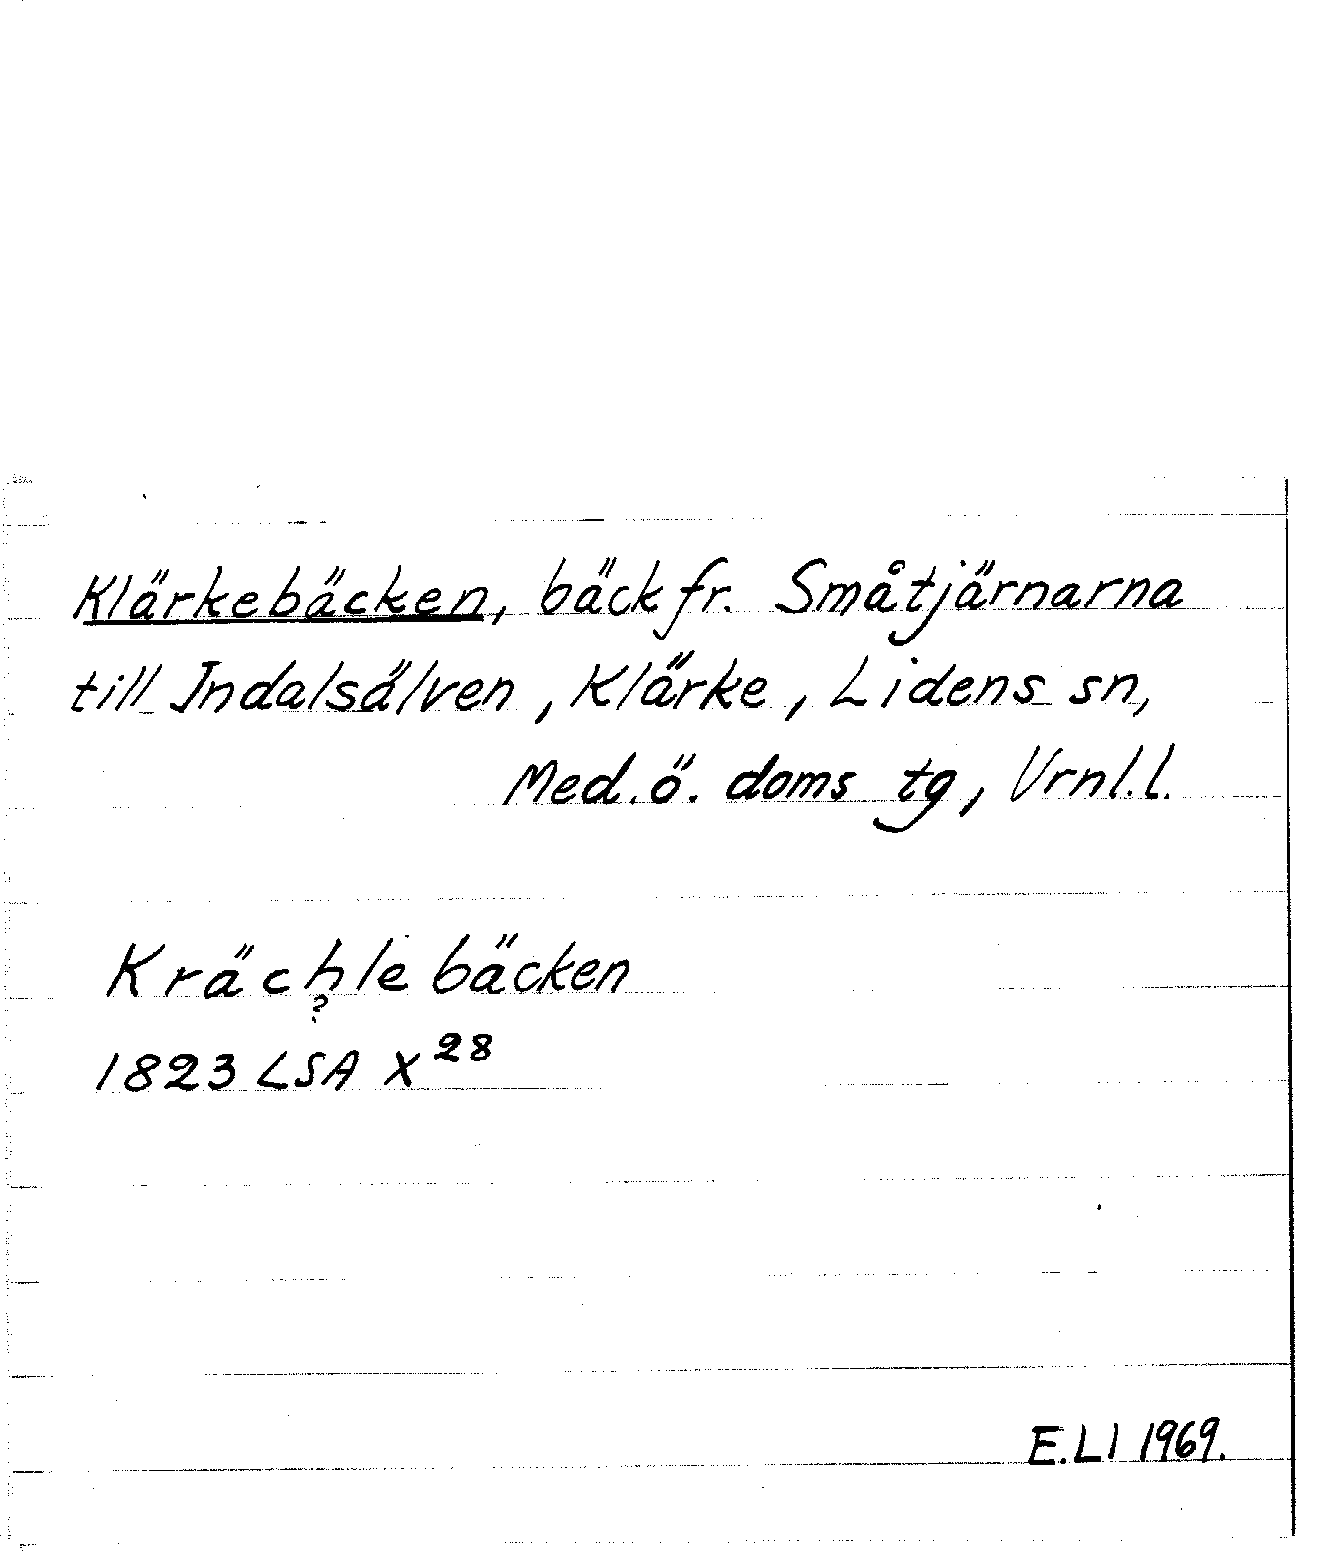 Klärkebäcken, bäck fr. Småtjärnarna
till Indalsälven, Klärke, Lidens sn,
Med. ö. doms tg, Vrnl.l.
Krächlebäcken
?
1823 LSA X28
E.LI 1969.